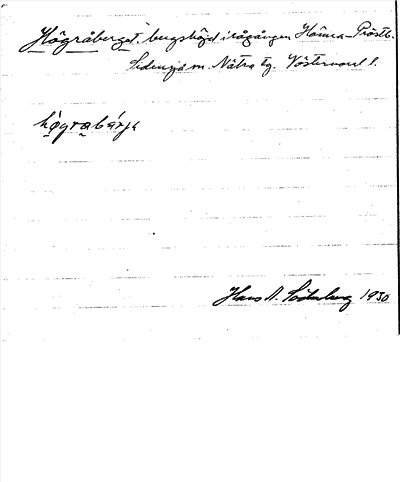 Högråberget. bergshöjd i rågången Hämra - Prästb.
Sidensjö sn. Nätra tg. Västernorrl l.
högrabärje
Hans A. Söderberg 1930